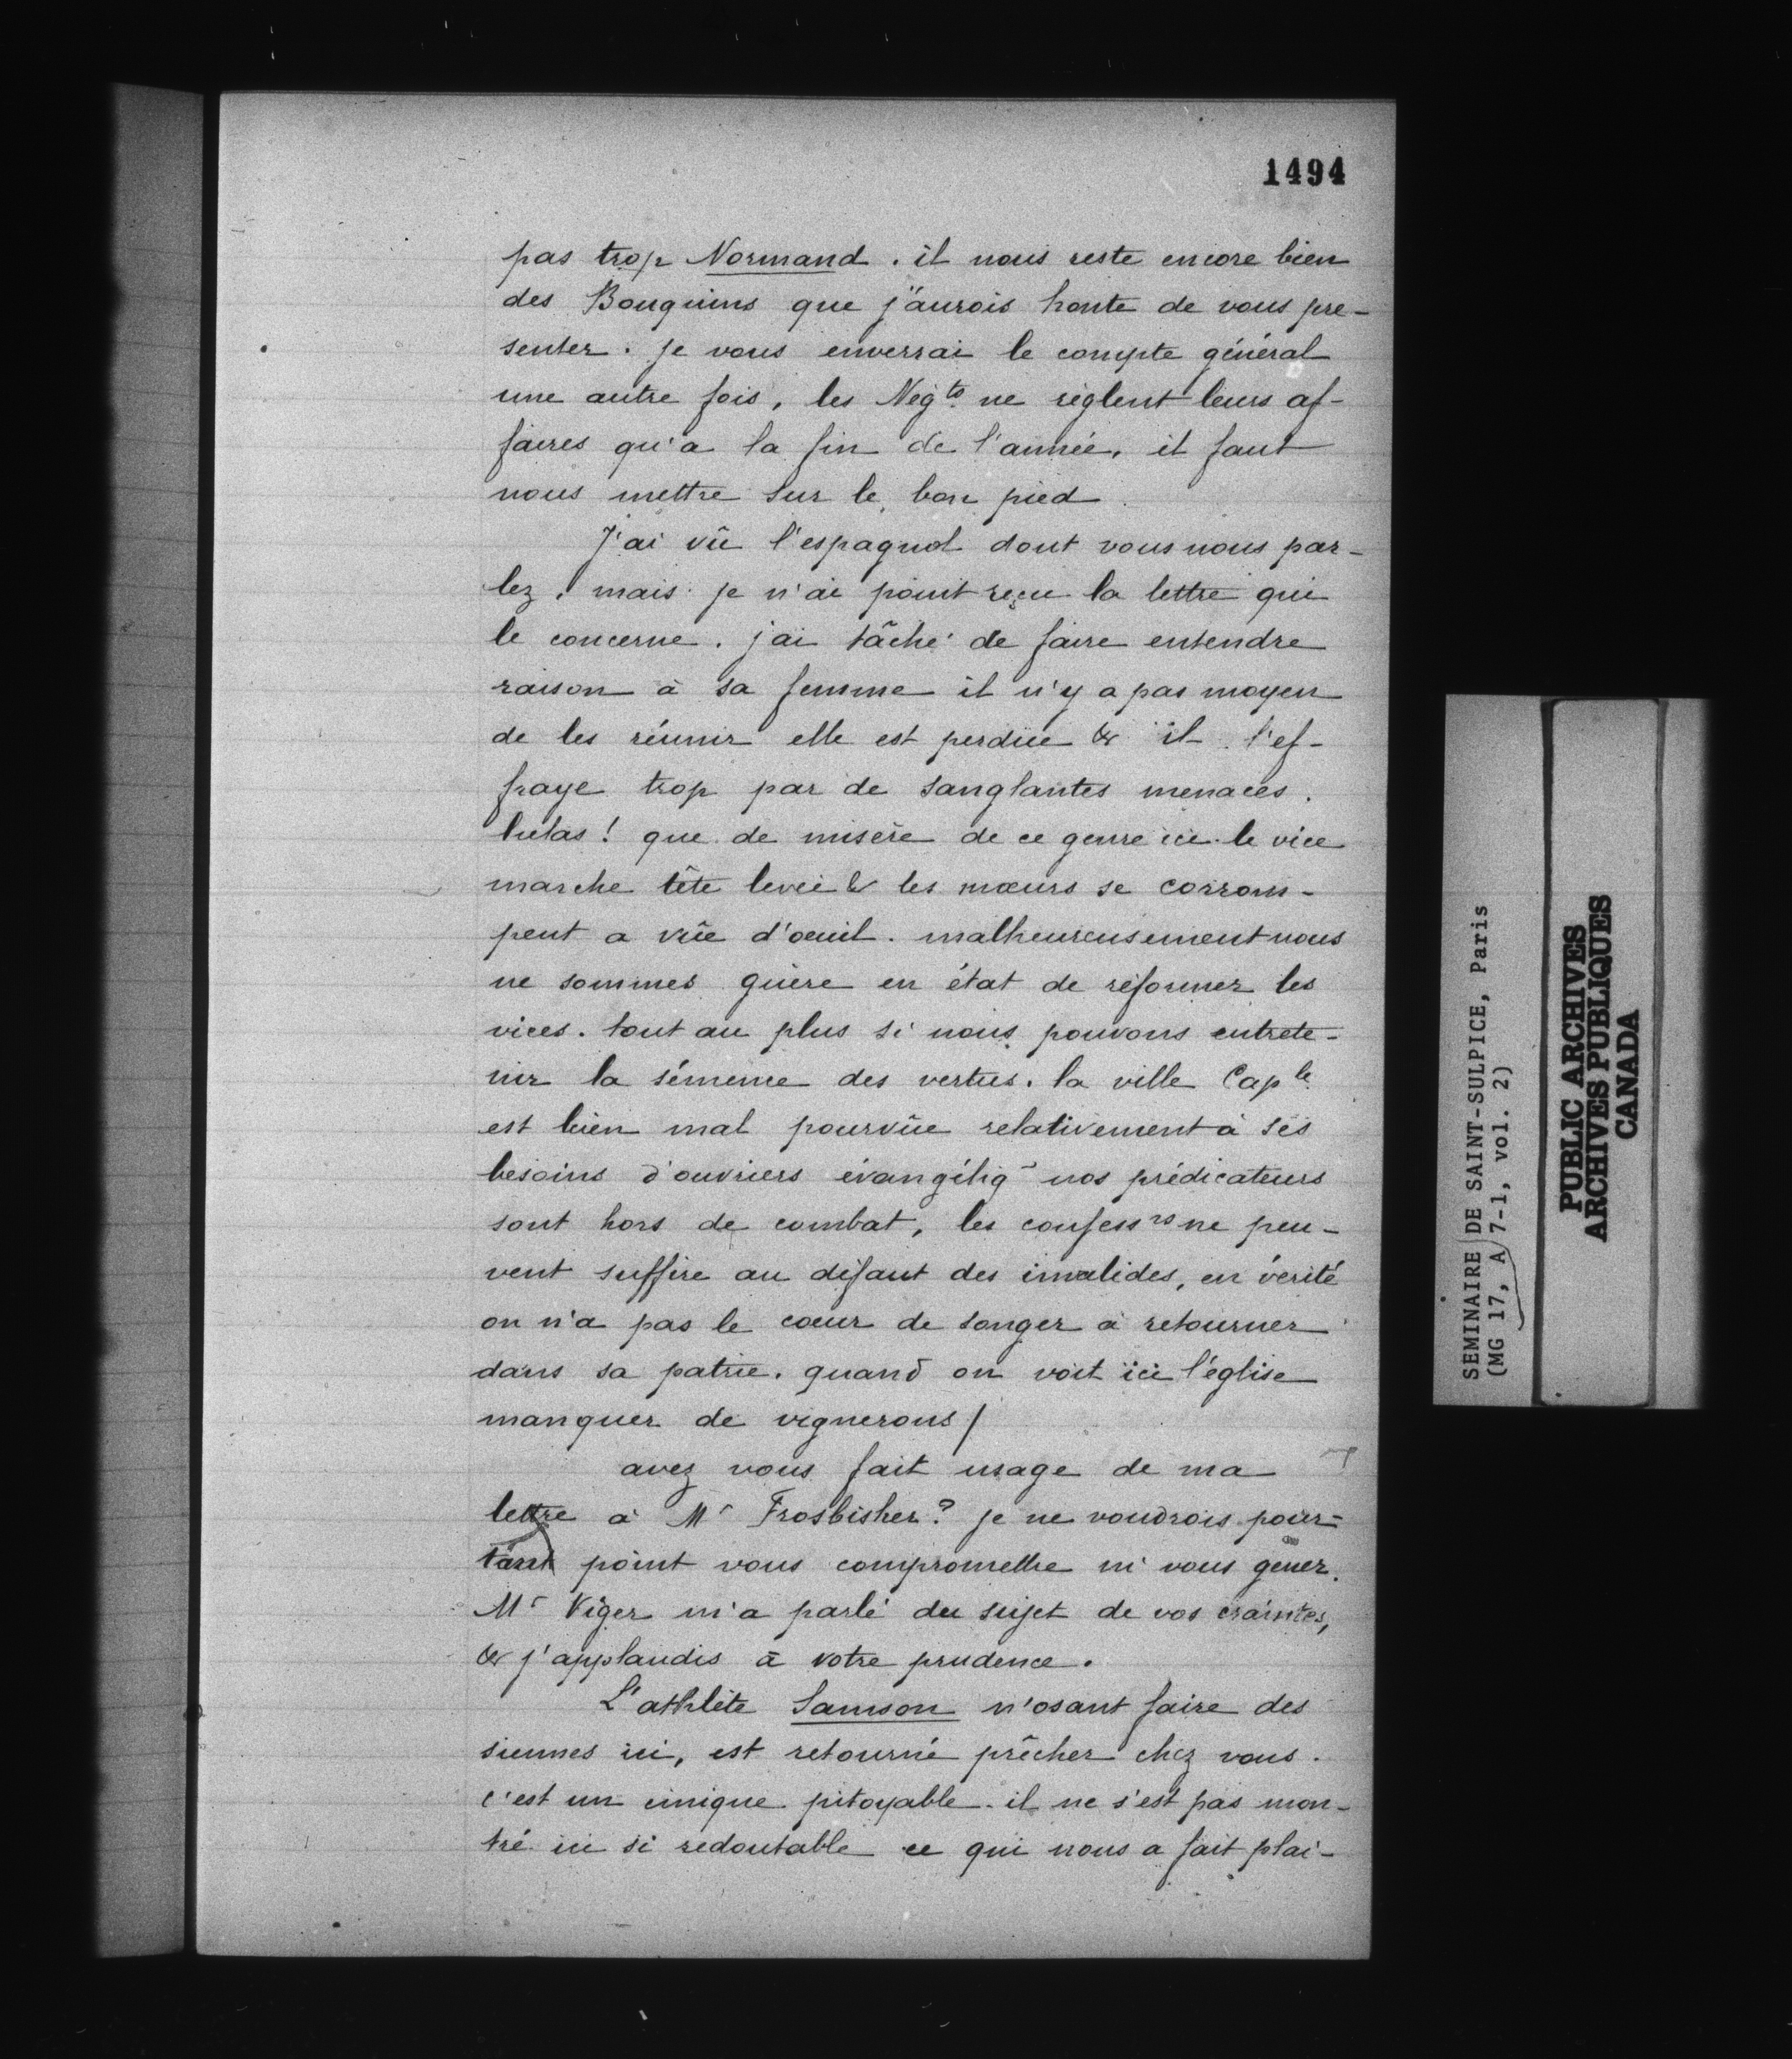 1494
pas trop Normand. il nous reste encore bien
des Bouquins que j'aurois honte de vous pre-
senter. je vous enverrai le compte général
une autre fois, les Negts ne règlent leurs af-
faires qu'a la fin de l'année, il faut
nous mettre sur le bon pied
J'ai vû l'espagnol dont vous nous par-
lez, mais je n'ai point reçu la lettre qui
le concerne. j'ai tâché de faire entendre
raison à sa femme il n'y a pas moyen
de les réunir elle est perdue & il l'ef-
fraye trop par de sanglantes menaces.
helas! que de misère de ce genre ici. le vice
marche tête levée & les mœurs se corrom-
pent a vûe d'oeuil. malheureusement nous
ne sommes guère en état de réformer les
vices. tout au plus si nous pouvons entrete-
nir la sémence des vertus. la ville Caple
est bien mal pourvûe relativement à ses
besoins d'ouvriers évangéliq~ nos prédicateurs
sont hors de combat, les confessrs ne peu-
vent suffire au défaut des invalides, en vérité
on n'a pas le coeur de songer à retourner
dans sa patrie. quand on voit ici l'église
manquer de vignerons/
avez vous fait usage de ma
lettre à Mr Frosbisher? je ne voudrois pour-
tant point vous compromettre ni vous gener.
Mr Viger m'a parlé du sujet de vos craintes,
& j'applaudis à votre prudence.
L'athlète Samson n'osant faire des
siennes ici, est retourné prêcher chez vous.
c'est un cinique pitoyable. il ne s'est pas mon-
tré ici si redoutable ce qui nous a fait plai-
SEMINAIRE DE SAINT-SULPICE, Paris
(MG 17, A 7-1, vol. 2)
PUBLIC ARCHIVES
ARCHIVES PUBLIQUES
CANADA